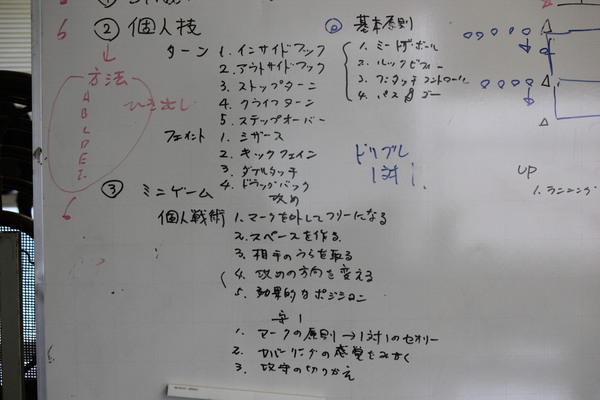 ② 個人技
ターン 1. インサイドフック
2. アウトサイドフック
3. ストップターン
4. クライフターン
5. ステップオーバー
フェイント 1. シザース
2. キックフェイン
3. ダブルタッチ
4. ドラッグバック
5
↓
方法
A
B
C
D
E
ひき出し
◎ 基本原則
1. ミートザボール
2. ルックビフォー
3. ワンタッチコントロール
4. パス&ゴー
ドリブル
1対1.
UP
1. ランニング
6
③ ミニゲーム
攻め
個人戦術 1. マークを外してフリーになる
2. スペースを作る.
3. 相手のうらを取る
4. 攻めの方向を変える
5. 効果的なポジション
守り
1. マークの原則→1対1のセオリー
2. カバーリングの感覚をみがく
3. 攻守の切りかえ